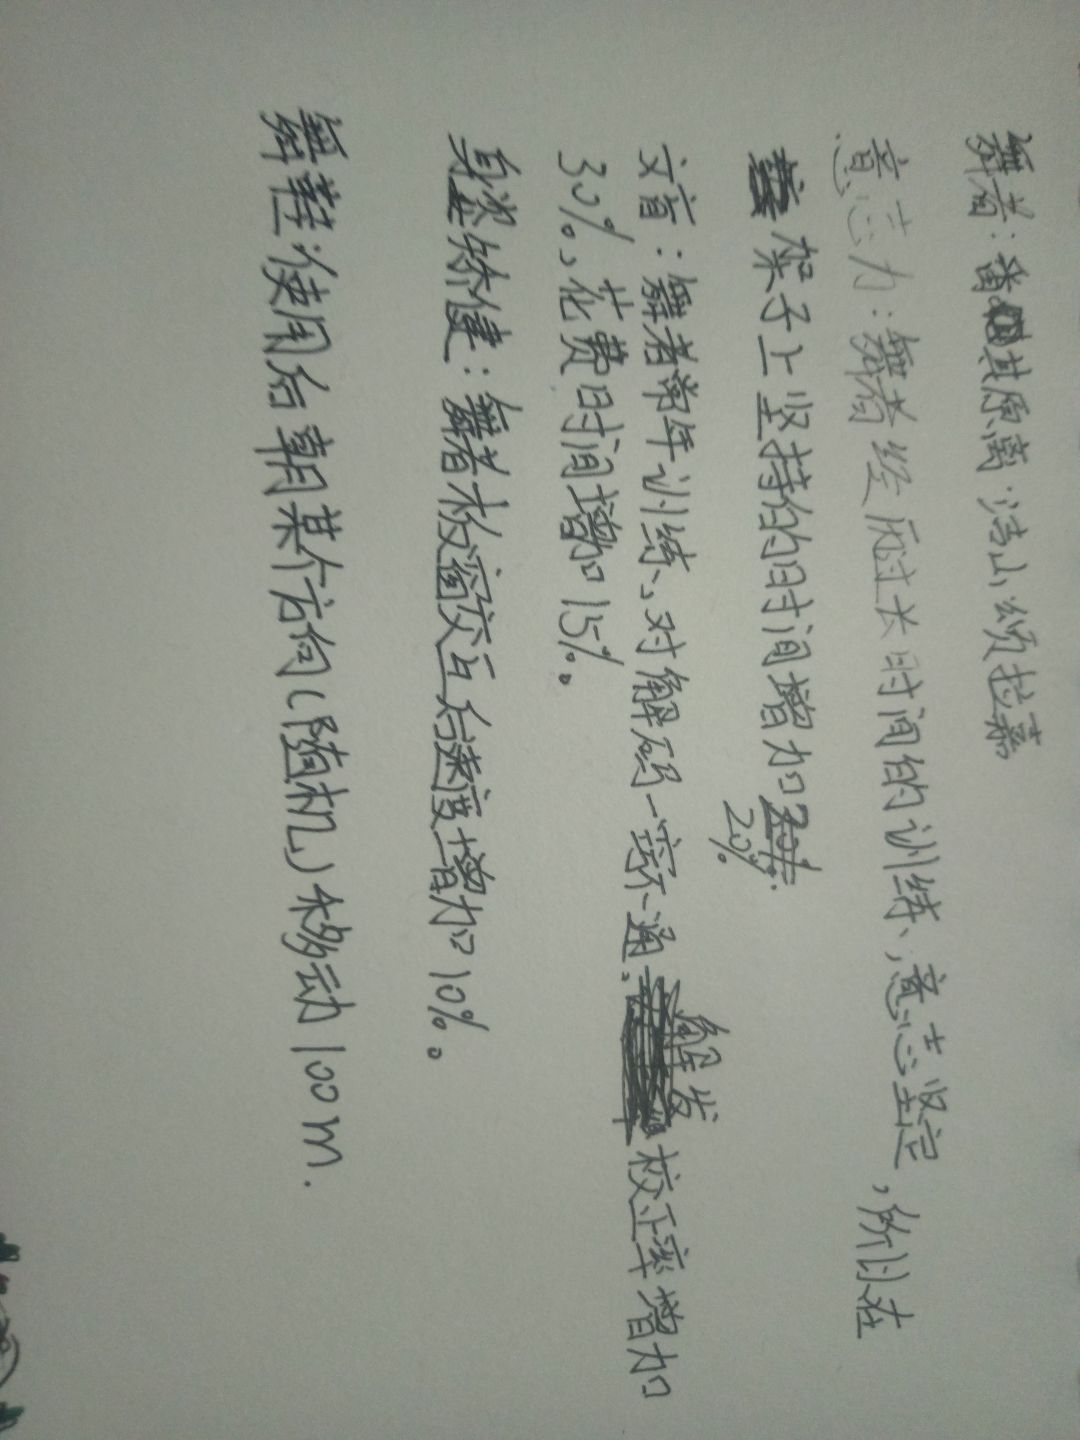 舞者:番其原离·浩山颂拉嘉
意志力:舞者经历过长时间的训练,意志坚定,所以在
架子上坚持的时间增加20%.
文盲:舞者常年训练,对解码一窍不通,触发校正率增加
30%,花费时间增加15%。
身姿矫健:舞者板窗交互后速度增加10%。
舞鞋:使用后朝某个方向(随机)移动100m.